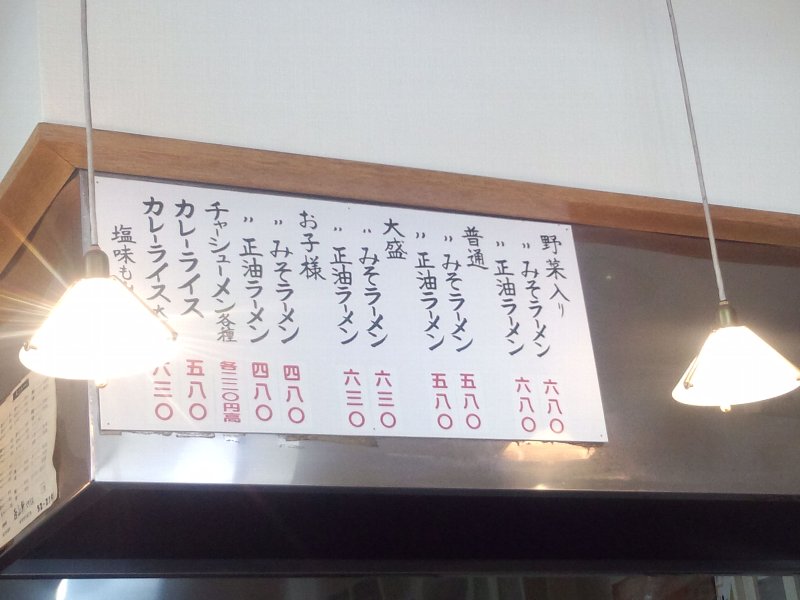 野菜入り
〃みそラーメン 六八〇
〃正油ラーメン 六八〇
普通
〃みそラーメン 五八〇
〃正油ラーメン 五八〇
大盛
〃みそラーメン 六三〇
〃正油ラーメン 六三〇
お子様
〃みそラーメン 四八〇
〃正油ラーメン 四八〇
チャーシューメン各種 各二二〇円高
カレーライス 五八〇
カレーライス大 六三〇
塩味も